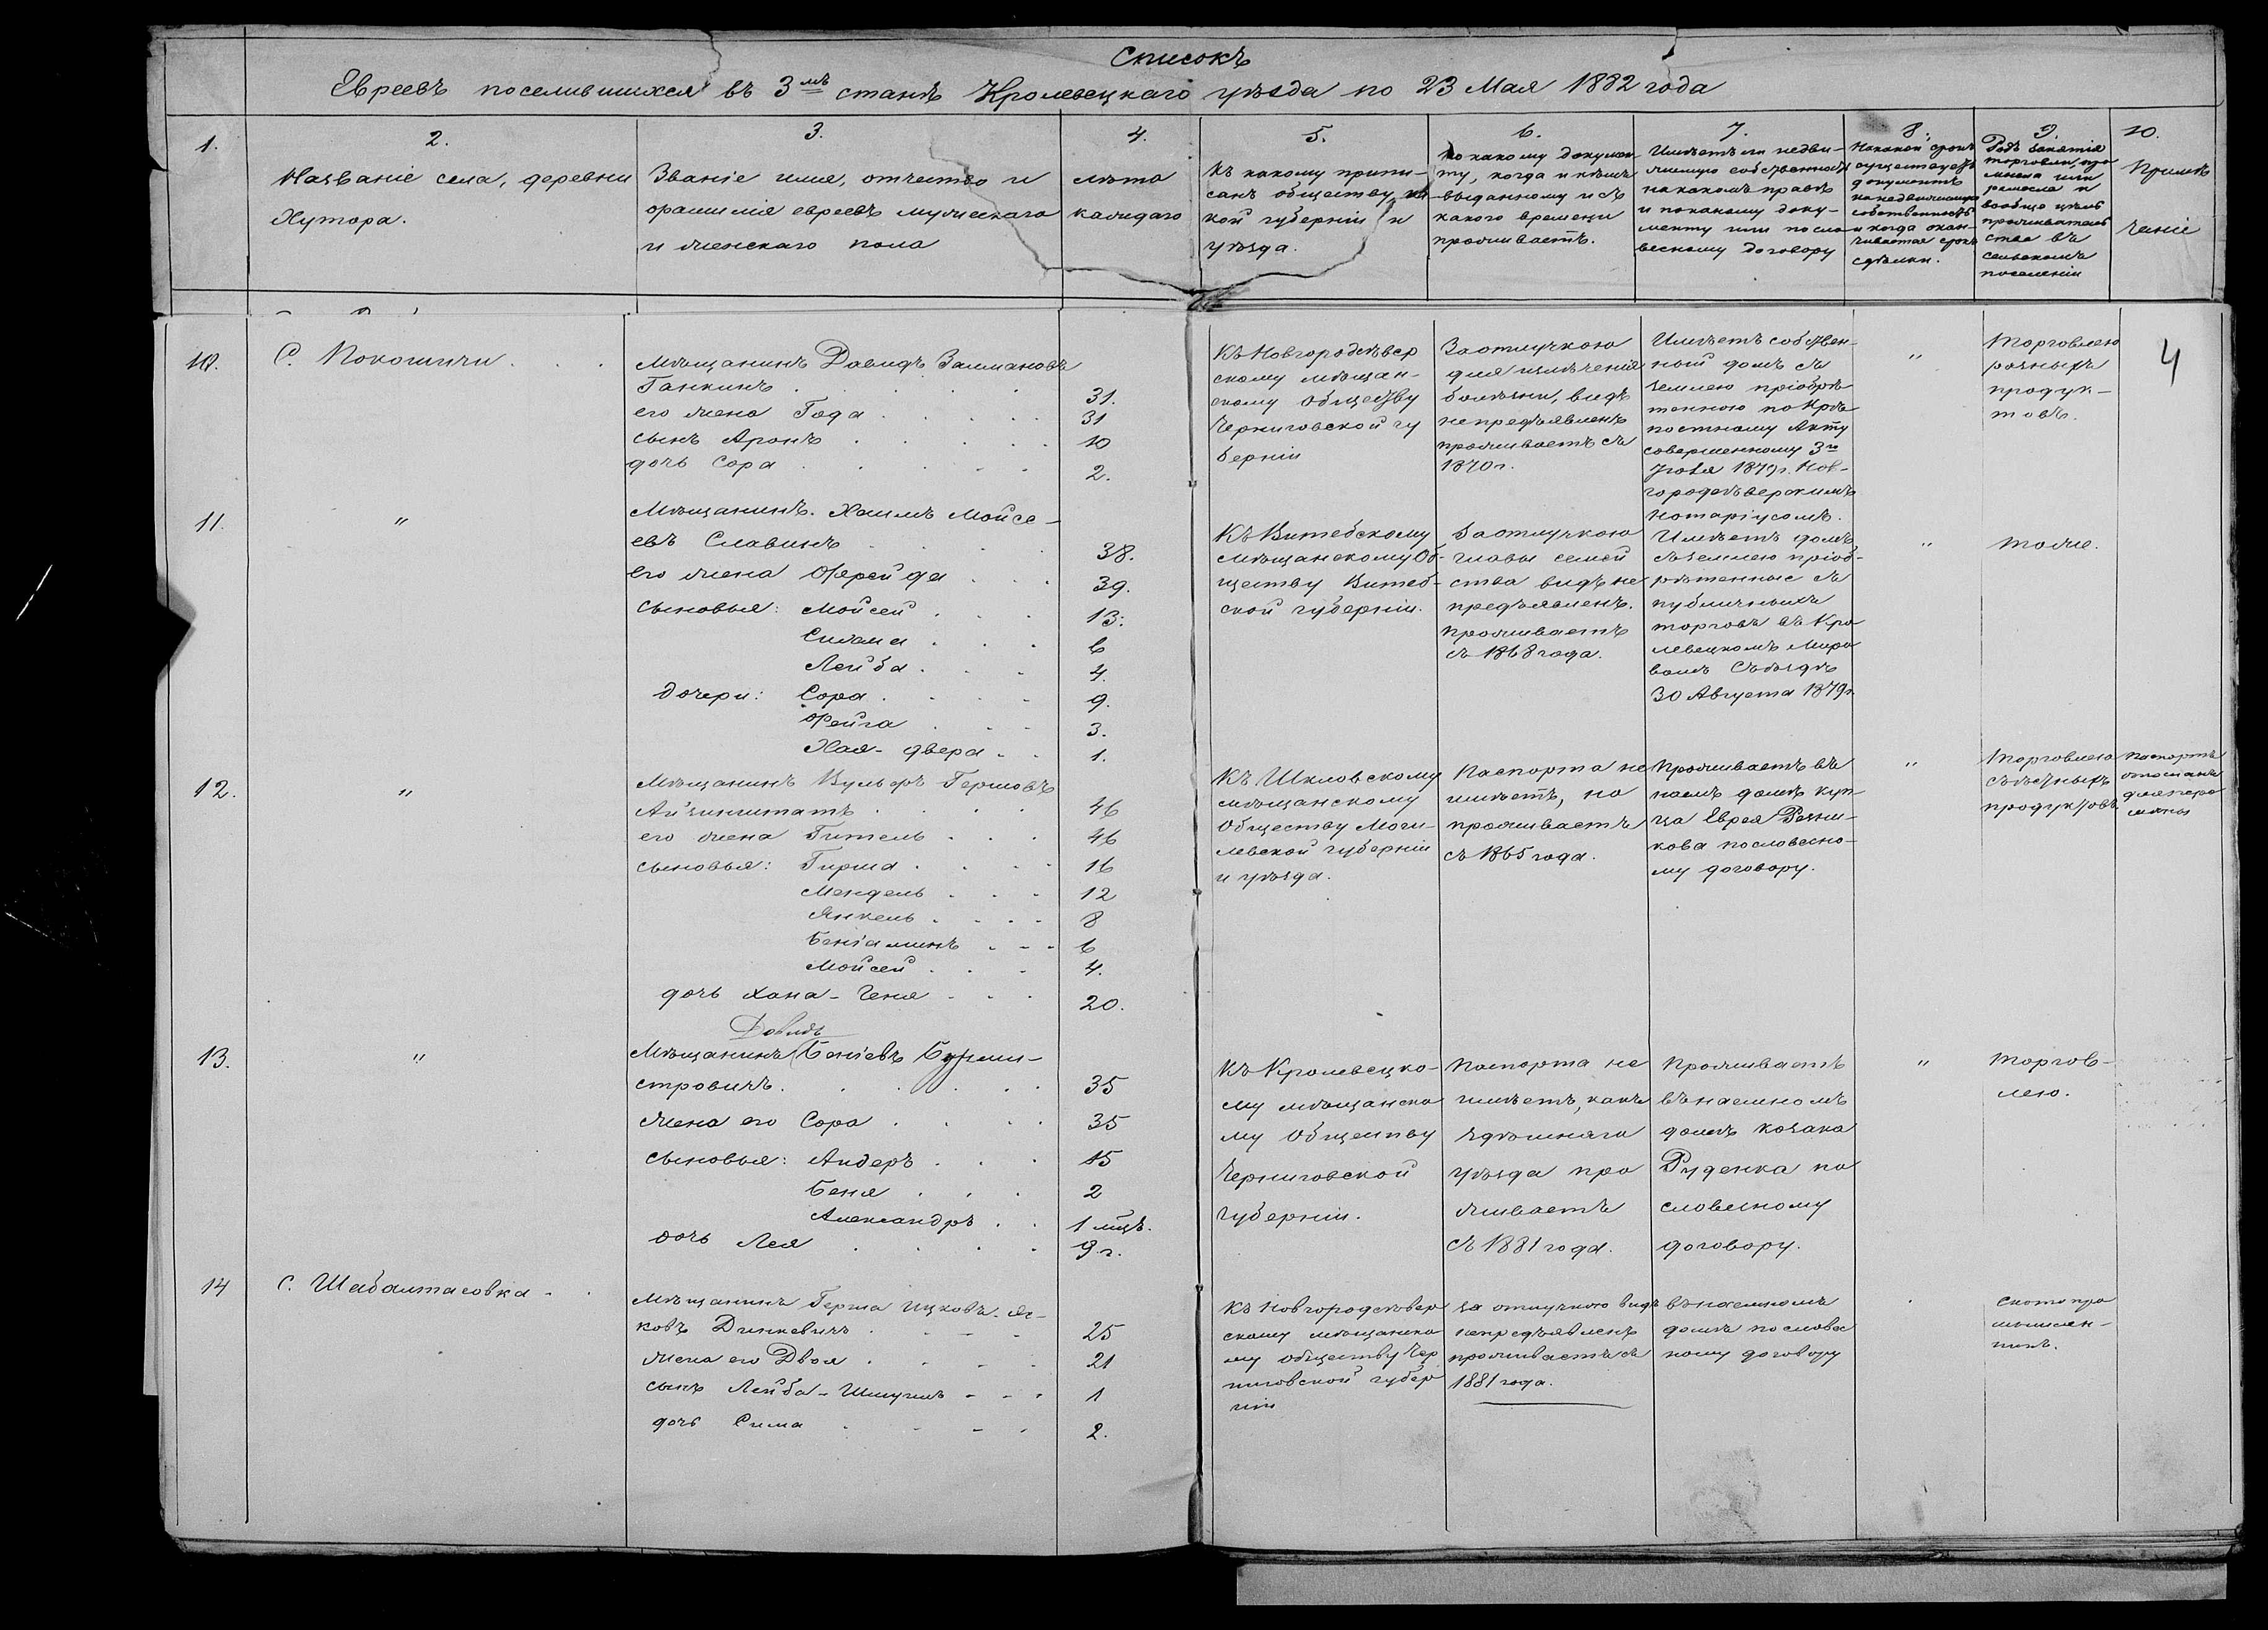 Списокъ
Евреевъ поселившихся въ 3мъ станѣ Кролевецкаго уѣзда по 23 Мая 1882 года
1.
2.
Названіе села, деревни
Хутора.
3.
Званіе имя, отчество и
фамилія евреевъ мужескаго
и женскаго пола
4.
лѣта
каждаго
5.
Къ какому припи-
санъ обществу, ка
кой губерніи и
уѣзда.
6.
по какому докумен
ту, когда и кѣмъ
выданному и съ
какого времени
проживаетъ.
7.
Имѣетъ ли недви-
жимую собственность
на какомъ правѣ
и по какому доку-
менту или по сло
весному договору
8.
На какой срокъ
существуетъ
документъ
на недвижимую
собственность
и когда окан-
чивается срокъ
сдѣлки.
9.
Родъ занятія
торговли, про
мысла или
ремесла и
вообще цѣль
прожиратель
ства въ
сельскомъ
поселеніи
10.
Примѣ
чаніе
4
10.
С. Покошичи
Мѣщанинъ Давидъ Залмановъ
Ганкинъ 31.
его жена Года 31
сынъ Аронъ 10
дочь Сора 2.
Къ Новгородсѣвер
скому мѣщан-
скому Обществу
Черниговской гу
берніи
За отлучкою
для излѣченія
болѣзни, видъ
непредъявленъ
проживаетъ съ
1870 г.
Имѣетъ собствен-
ный домъ съ
землею пріобрѣ
тенною по Крѣ
постному Акту
совершенному 3го
Іюля 1879 г. Нов-
городсѣверскимъ
Нотаріусомъ.
"
Торговлею
разныхъ
продук-
товъ.
11.
"
Мѣщанинъ Хаимъ Мойсе-
евъ Славинъ 38.
его жена Фрейда 39.
сыновья: Мойсей 13.
6
Лейба 4.
дочери: Сора 9.
Фейга 3.
Хая-двера 1.
Къ Витебскому
мѣщанскому Об-
ществу Витеб-
ской губерніи.
За отлучкою
главы семей
ства видъ не
предъявленъ.
проживаетъ
съ 1868 года.
Имѣетъ домъ
съ землею пріоб-
рѣтенные съ
публичныхъ
торговъ въ Кро
левецкомъ Миро
вомъ Съѣздѣ
30 Августа 1879 г.
"
тоже.
12.
"
Мѣщанинъ Вульфъ Гершовъ
Айзинштатъ 46
его жена Гитель 46
сыновья: Гирша 16
Мендель 12
Янкель 8
Бенiаминъ 6
Мойсей 4.
дочь Хана-Геня 20.
Къ Шкловскому
мѣщанскому
Обществу Моги-
левской губерніи
и уѣзда.
Паспорта не
имѣетъ, но
проживаетъ
съ 1865 года.
Проживаетъ въ
наемъ домъ куп-
ца Еврея Резни-
кова по словесно-
му договору.
"
Торговлею
съѣстныхъ
продуктовъ
Паспортъ
отосланъ
для пере
мѣны
13.
"
Довидъ
Мѣщанинъ Беніевъ Бурми-
стровичъ 35
жена его Сора 35
сыновья: Андеръ 15
Беня 2
Александръ 1 мцъ.
дочь Лея 9 г.
Къ Кролевецко-
му мѣщанско
му Обществу
Черниговской
губерніи.
Паспорта не
имѣетъ, какъ
здѣшняго
уѣзда про
живаетъ
съ 1881 года.
Проживаетъ
въ наемномъ
домѣ козака
Руденка по
словесному
договору.
"
торгов-
лею.
14
С. Шабалтасовка
Мѣщанинъ Герша Ицковъ-Яс-
ковъ Динкевичъ 25
жена его Двоя 21
сынъ Лейба-Шмуилъ 1
дочь Сима 2.
Къ Новгородсѣвер
скому мѣщанско
му Обществу Чер
ниговской губер
ніи
за отлучкою видъ
непредъявленъ
проживаетъ съ
1881 года.
въ наемномъ
домѣ по словес
ному договору
Скотопро
мышлен-
никъ.